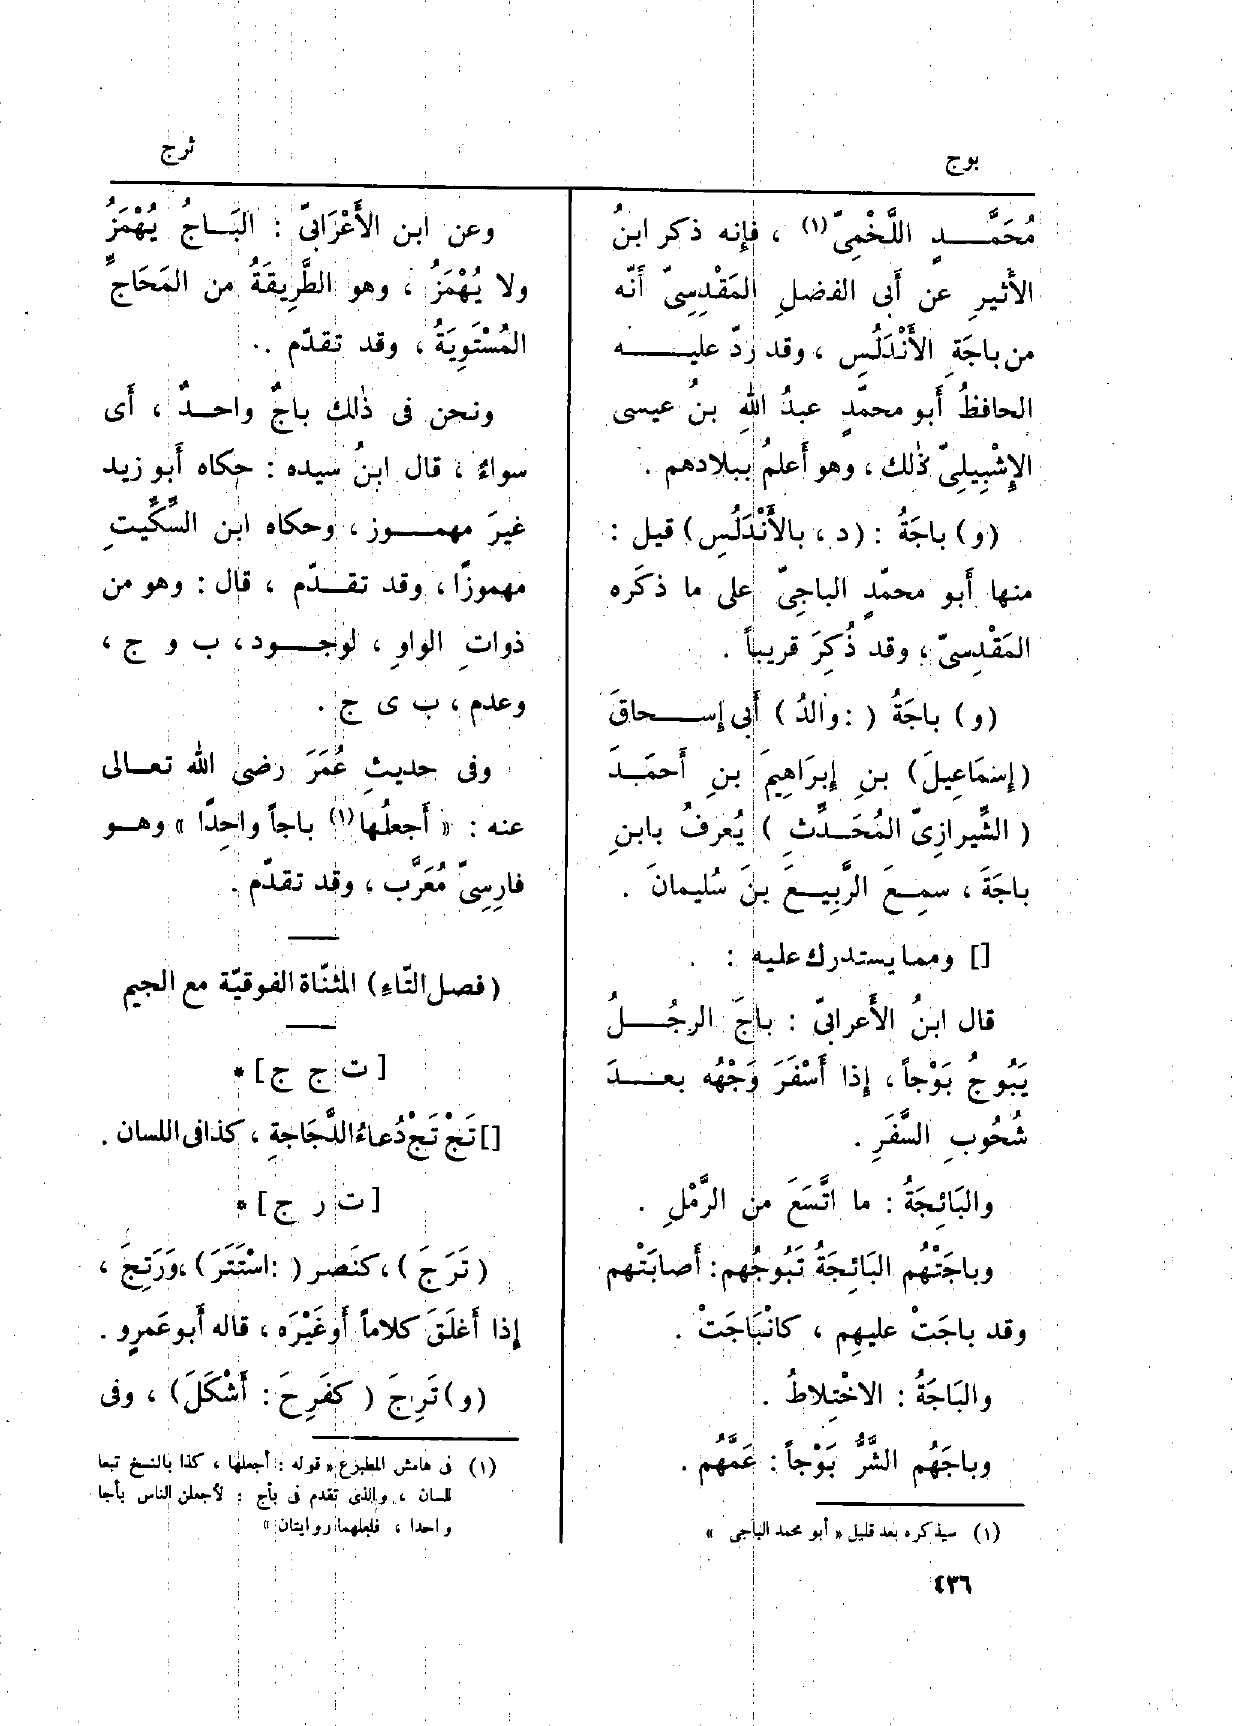 بوج
ثرج
مُحَمَّـــدٍ اللَّخْمِىّ (١) ، فإِنه ذكر ابنُ
الأَثيرِ عن أَبى الفضلِ المَقْدِسِىّ أَنّه
من باجَةِ الأَنْدَلُسِ ، وقد ردّ عليـــه
الحافظُ أَبو محمّدٍ عبدُ اللهِ بنُ عيسى
الإِشْبِيلِىّ ذٰلك ، وهو أَعلمُ ببلادهم .
(و) باجَةُ : (د ، بالأَنْدَلُسِ) قيل :
منها أَبو محمّدٍ الباجِىّ على ما ذكَره
المَقْدِسىّ ، وقد ذُكِرَ قريباً .
(و) باجَةُ ( : والدُ ) أَبى إِســـحاقَ
(إِسْمَاعِيلَ) بنِ إِبرَاهِيمَ بنِ أَحمَـدَ
( الشِّيرازِىّ المُحَـدِّثِ ) يُعرفُ بابنِ
باجَةَ ، سمِـعَ الرَّبِيـعَ بنَ سُليمانَ .
[] ومما يستدرك عليه :
قال ابنُ الأَعرابىّ : باجَ الرجُـــلُ
يَبُوجُ بَوْجاً ، إِذا أَسْفَرَ وَجْهُه بعـــدَ
شُحُوبِ السَّفَرِ .
والبَائِجَةُ : ما اتَّسَعَ من الرَّمْلِ .
وباجَتْهُم البَائِجَةُ تَبُوجُهم : أَصابَتْهم
وقد باجَتْ عليهم ، كانْبَاجَتْ .
والبَاجَةُ : الاخْتِلاطُ .
وباجَهُم الشَّرُّ بَوْجاً : عَمَّهُم .
(١) سيذكره بعد قليل « أبو محمد الباجى »
وعن ابن الأَعْرَابىّ : البَـــاجُ يُهْمَزُ
ولا يُهْمَزُ ، وهو الطَّرِيقَةُ من المَحَاجِّ
المُسْتَوِيَةُ ، وقد تقدّم ..
ونحن فى ذٰلك باجٌ واحـدٌ ، أَى
سواءٌ ، قال ابنُ سيده : حكاه أَبو زيد
غيرَ مهمـــوز ، وحكاه ابن السِّكِّيتِ
مهموزًا ، وقد تقـــدّم ، قال : وهو من
ذواتِ الواوِ ، لوجـــود ، ب و ج ،
وعدم ، ب ى ج .
وفى حديثِ عُمَرَ رضى الله تعـالى
عنه : « أَجعلُها (١) باجاً واحِدًا » وهــو
فارِسِىّ مُعَرَّب ، وقد تقدّم .
(فصل التّاءِ) المثنّاة الفوقيّة مع الجيم
[ ت ج ج ] *
[] تَجْ تَجْ دُعاءُ الدَّجَاجةِ ، كذا فى اللسان .
[ ت ر ج ] *
( تَرَجَ ) ، كنَصر ( : اسْتَتَرَ ) ، وَرَتِجَ ،
إِذا أَغلَقَ كلاماً أَو غَيْرَه ، قاله أَبو عَمرٍو .
(و) تَرِجَ ( كفَرِحَ : أَشْكَلَ) ، وفى
(١) فى هامش المطبوع « قوله : أجعلها ، كذا بالنسخ تبعا
للسان ، والذى تقدم فى بأج : لأجعلن الناس بأجا
واحدا ، فلعلهما روايتان »
٤٣٦